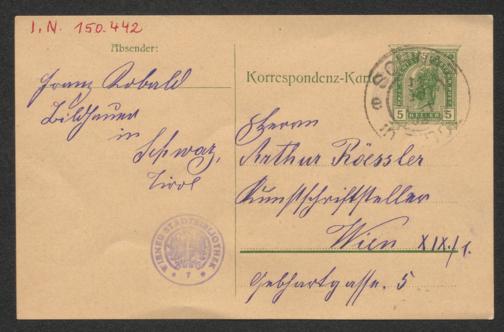 I.N. 150.442
Absender:
Franz Kobald
Bildhauer
in
Schwaz,
Tirol
WIENER STADTBIBLIOTHEK
* 7 *
Korrespondenz-Karte
5 HELLER 5
Herrn
Arthur Rössler
Kunstschriftsteller
Wien XIX./1.
Gebhartgasse. 5